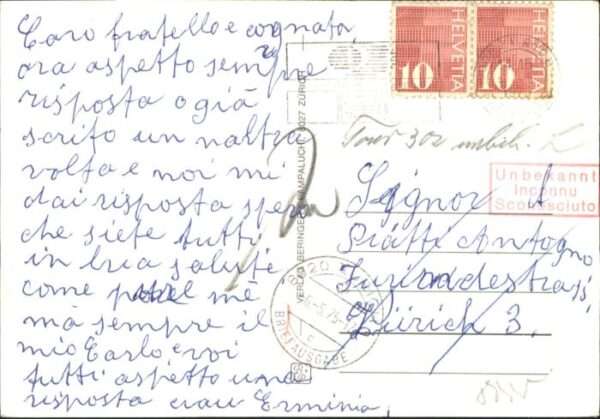 Caro fratello e cognata,
ora aspetto sempre
risposta o già
scrito un naltra
volta e noi mi
dai risposta spero
che siete tutti
in bua salute
come mè
ma sempre il
mio Carlo, e voi
tutti aspetto una
risposta ciau Erminia
VERLAG BERINGER & PAMPALUCHI, 8027 ZÜRICH
HELVETIA 10
HELVETIA 10
Unbekannt
Inconnu
Sconosciuto
Signor A
Piatti Antogno
Zürich 3.
BRIEFAUSGABE